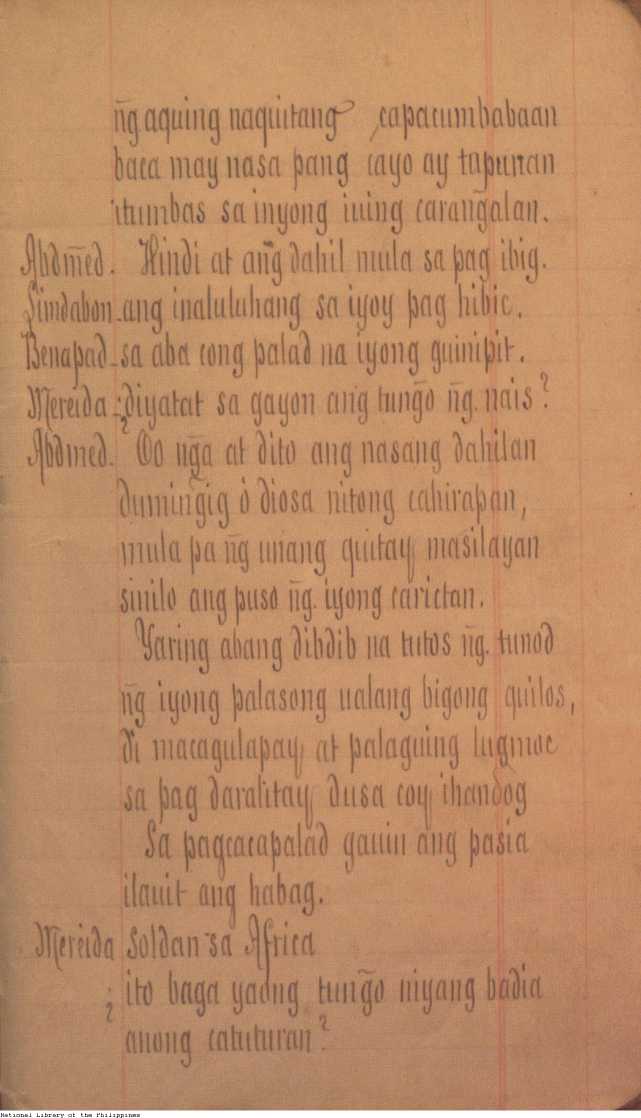 n̄g aquing naquitang capacumbabaan
baca may nasa pang cayo ay tapunan
itumbas sa inyong iuing caran̄galan.
Abdm̄ed. Hindi at an̄g dahil mula sa pag ibig.
Simdabon - ang inaluluhang sa iyoy pag hibic.
Benapad - sa aba cong palad na iyong guinipit.
Mereida - ¿diyatat sa gayon ang tun̄go n̄g. nais?
Abdmed. Oo n̄ga at dito ang nasang dahilan
dumin̄gig ó diosa nitong cahirapan,
mula pa n̄g unang quitay masilayan
sinilo ang puso n̄g. iyong carictan.
Yaring abang dibdib na tutos n̄g. tunod
n̄g iyong palasong ualang bigong quilos,
di macagulapay at palaguing lugmoc
sa pag daralitay dusa coy ihandog
Sa pagcacapalad gauin ang pasia
ilauit ang habag.
Mereida Soldan sa Africa
¿ ito baga yaong tun̄go niyang badia
anong catuturan?
National Library of the Philippines